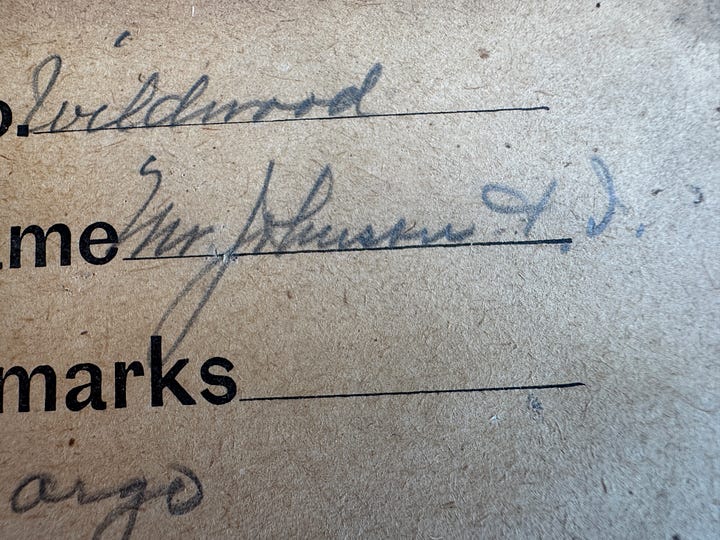 o. Wildwood
ame Mr Johnson F. D.
marks
argo